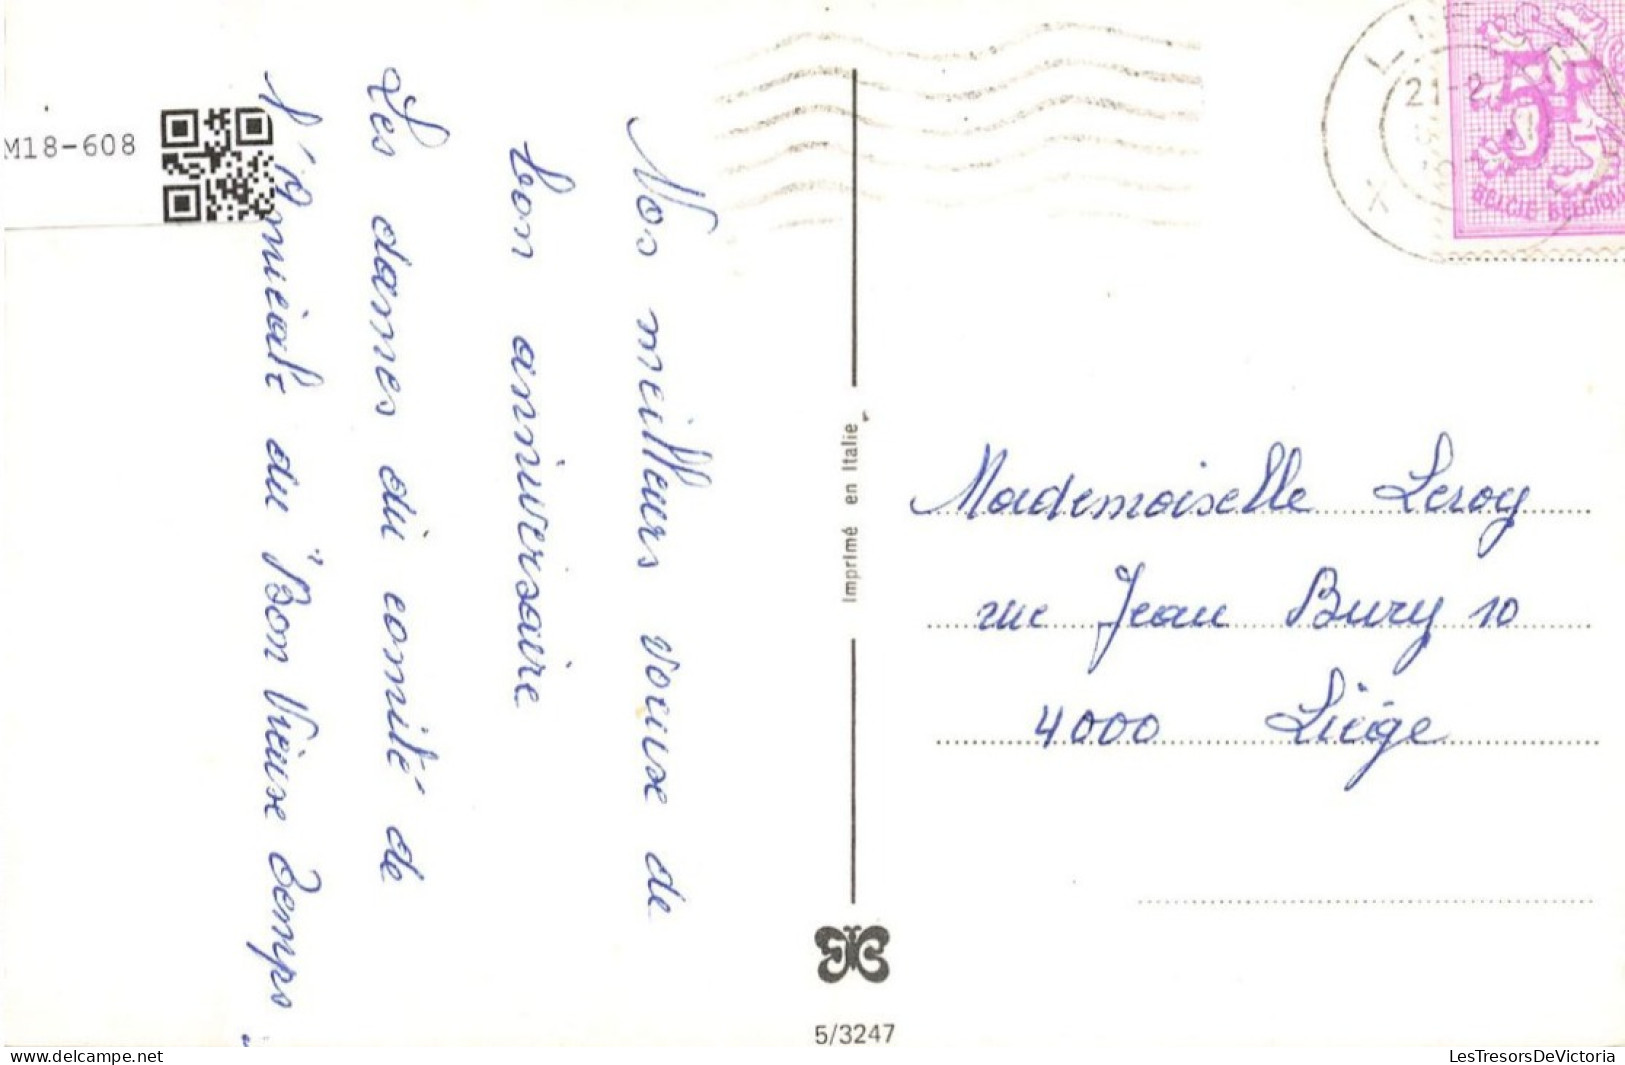 Nos meilleurs voeux de
bon anniversaire
Les dames du comité de
l'Amicale du "Bon Vieux Temps"
M18-608
Imprimé en Italie
5/3247
BELGIE BELGIQUE
Mademoiselle Leroy
rue Jean Bury 10
4000 Liège
delcampe.net
LesTresorsDeVictoria